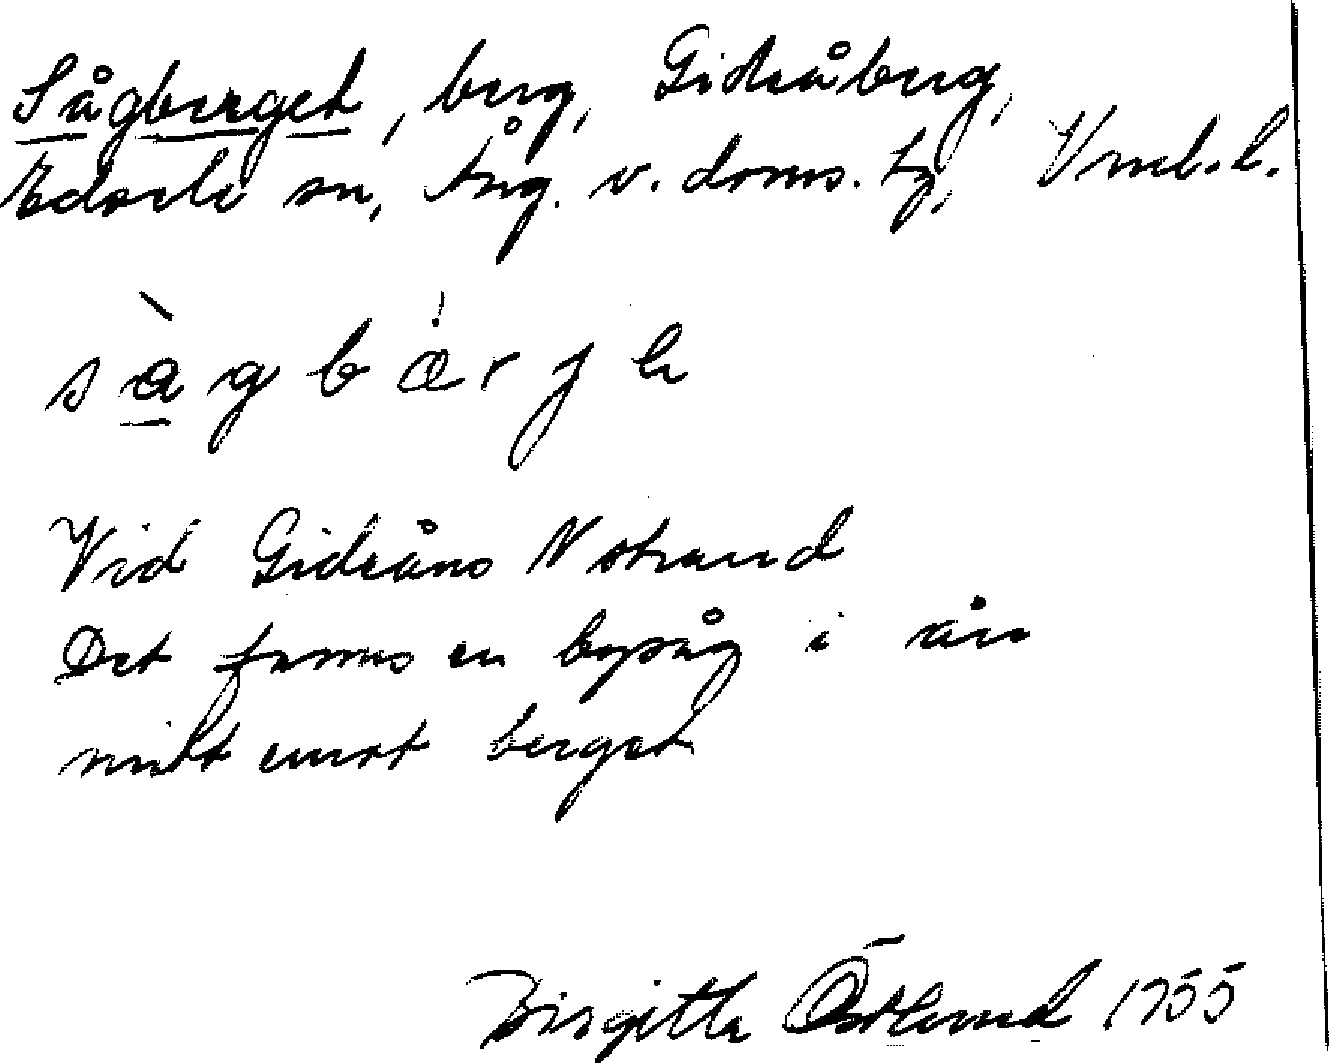 Sågberget, berg, Gideåberg,
Edsele sn, Ång. v. doms. tg, Vnrl. l.
sàgbǽrje
Vid Gideåns N strand
Det fanns en bysåg i ån
mitt emot berget
Birgitta Östlund 1955